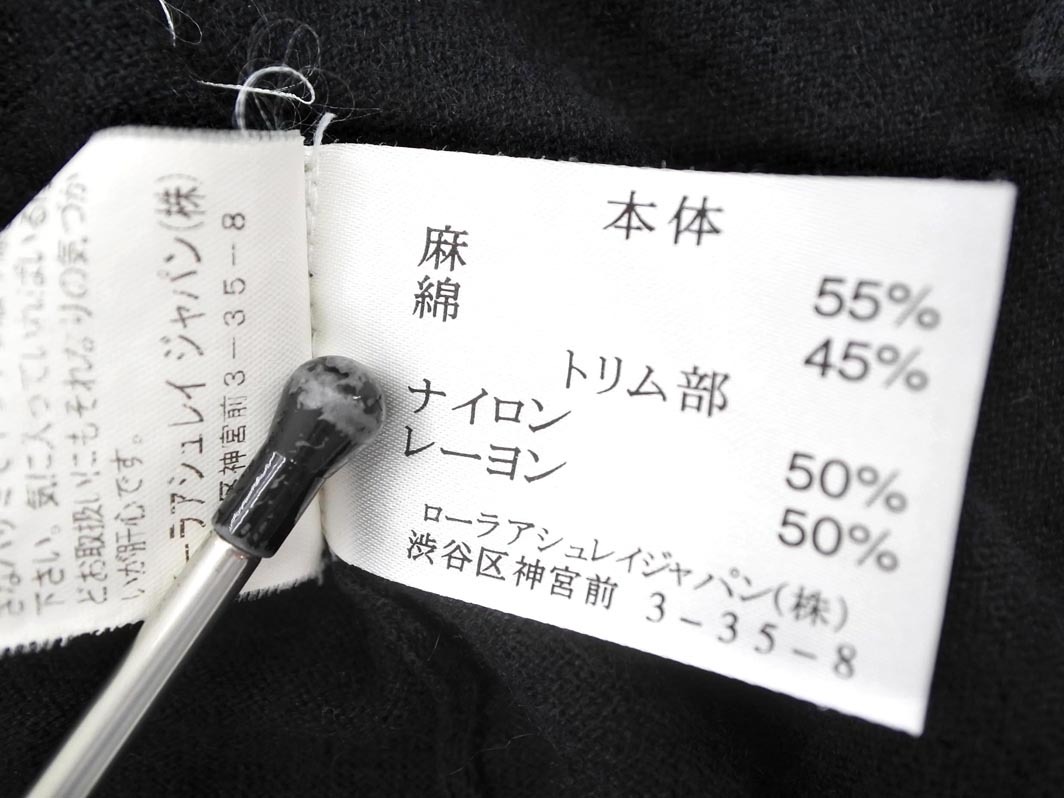 本体
麻 55%
綿 45%
トリム部
ナイロン 50%
レーヨン 50%
ローラアシュレイジャパン(株)
渋谷区神宮前 3-35-8
ーラアシュレイ ジャパン(株)
区神宮前3-35-8
下さい。気に入っていればいる
どお取扱いにもそれなりの気づか
いが肝心です。